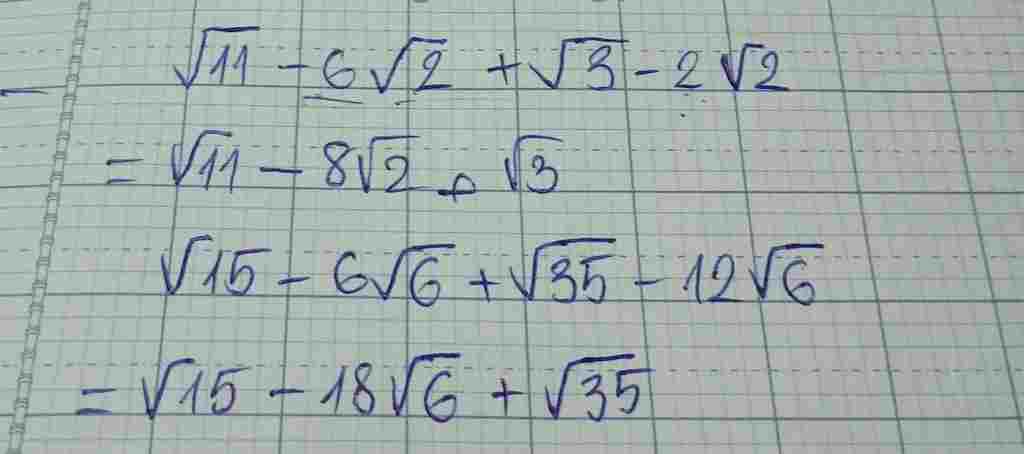 √11 - 6√2 + √3 - 2√2
= √11 - 8√2 + √3
√15 - 6√6 + √35 - 12√6
= √15 - 18√6 + √35